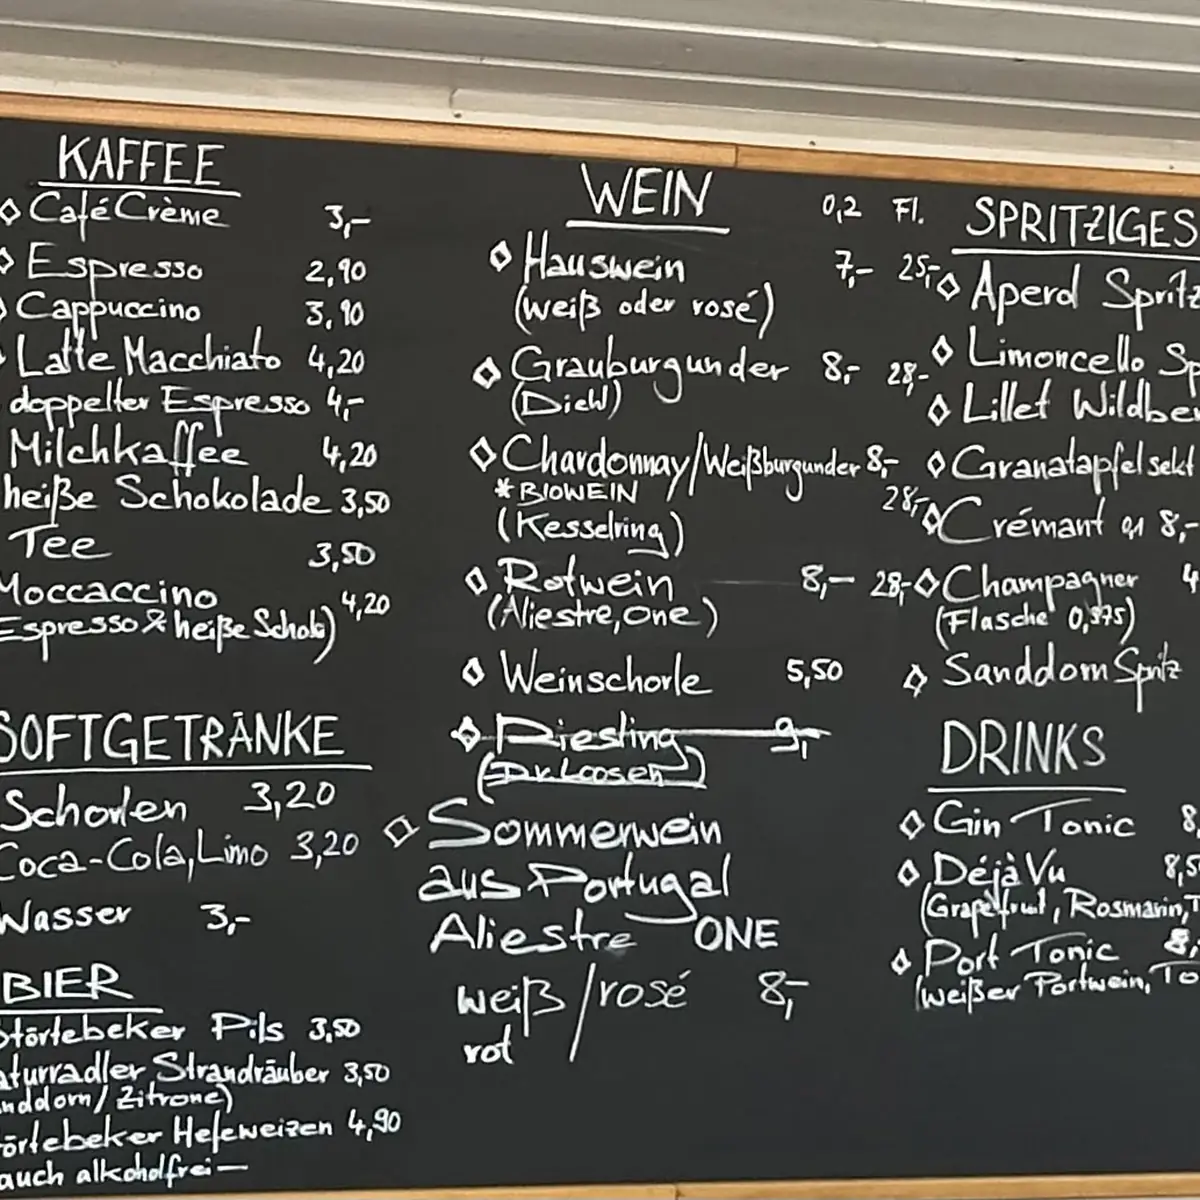 KAFFEE
Café Crème 3,-
Espresso 2,90
Cappuccino 3,90
Latte Macchiato 4,20
doppelter Espresso 4,-
Milchkaffee 4,20
heiße Schokolade 3,50
Tee 3,50
Moccaccino 4,20
Espresso & heiße Schoko)
SOFTGETRÄNKE
Schorlen 3,20
Coca-Cola, Limo 3,20
Wasser 3,-
BIER
törtebeker Pils 3,50
aturradler Strandräuber 3,50
nddorn/Zitrone)
örtebeker Hefeweizen 4,90
auch alkoholfrei—
WEIN 0,2 Fl.
Hauswein 7,- 25,-
(weiß oder rosé)
Grauburgunder 8,- 28,-
(Diehl)
Chardonnay/Weißburgunder 8,-
*BIOWEIN 28,-
(Kesselring)
Rotwein 8,- 28,-
(Aliestre, One)
Weinschorle 5,50
Riesling 9,-
(Dr. Loosen)
Sommerwein
aus Portugal
Aliestre ONE
weiß/rosé 8,-
rot
SPRITZIGES
Aperol Spritz
Limoncello Sp
Lillet Wildber
Granatapfelsekt
Crémant 0,1 8,-
Champagner 4
(Flasche 0,375)
Sanddorn Spritz
DRINKS
Gin Tonic 8
Déjà Vu 8,5
(Grapefruit, Rosmarin, T
Port Tonic 8,
(weißer Portwein, To